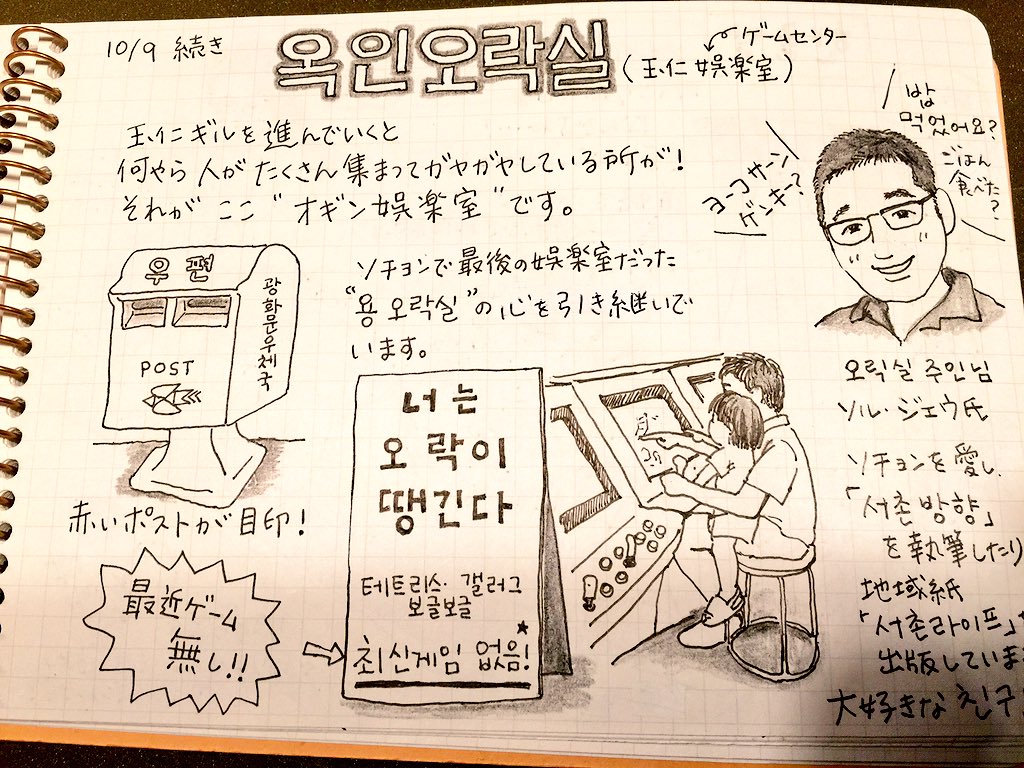 10/9 続き
옥인오락실
(玉仁 娯楽室)
ゲームセンター
玉仁ギルを進んでいくと
何やら人がたくさん集まってガヤガヤしている所が!
それがここ"オギン娯楽室"です。
밥
먹었어요?
ごはん
食べた
?
ヨーコサーン
ゲンキー?
우편
광화문우체국
POST
赤いポストが目印!
ソチョンで最後の娯楽室だった
"용 오락실"の心を引き継いで
います。
너는
오락이
땡긴다
테트리스・갤러그
보글보글
최신게임 없음!
最近ゲーム
無し!!
오락실 주인님
ソル・ジェウ氏
ソチョンを愛し、
「서촌방향」
を執筆したり
地域紙
「서촌라이프」
出版していま
大好きな친구